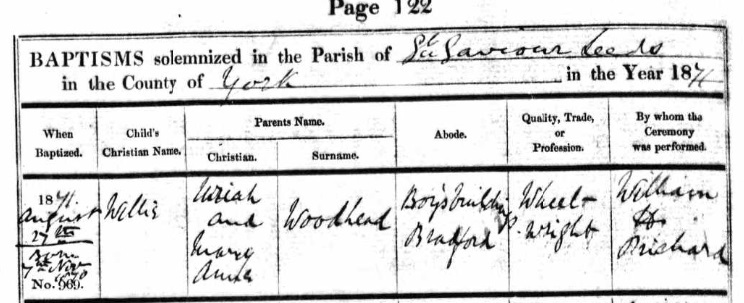 Page 122
BAPTISMS solemnized in the Parish of St Saviour Leeds
in the County of York in the Year 1871
When Baptized.
Child's Christian Name.
Parents Name.
Christian.
Surname.
Abode.
Quality, Trade, or Profession.
By whom the Ceremony was performed.
1871.
August
27th
Born
7th Nov
1870
No. 969.
Willie
Uriah
and
Mary
Woodhead
Boys buildings
Bradford
Wheel
wright
William
Prichard